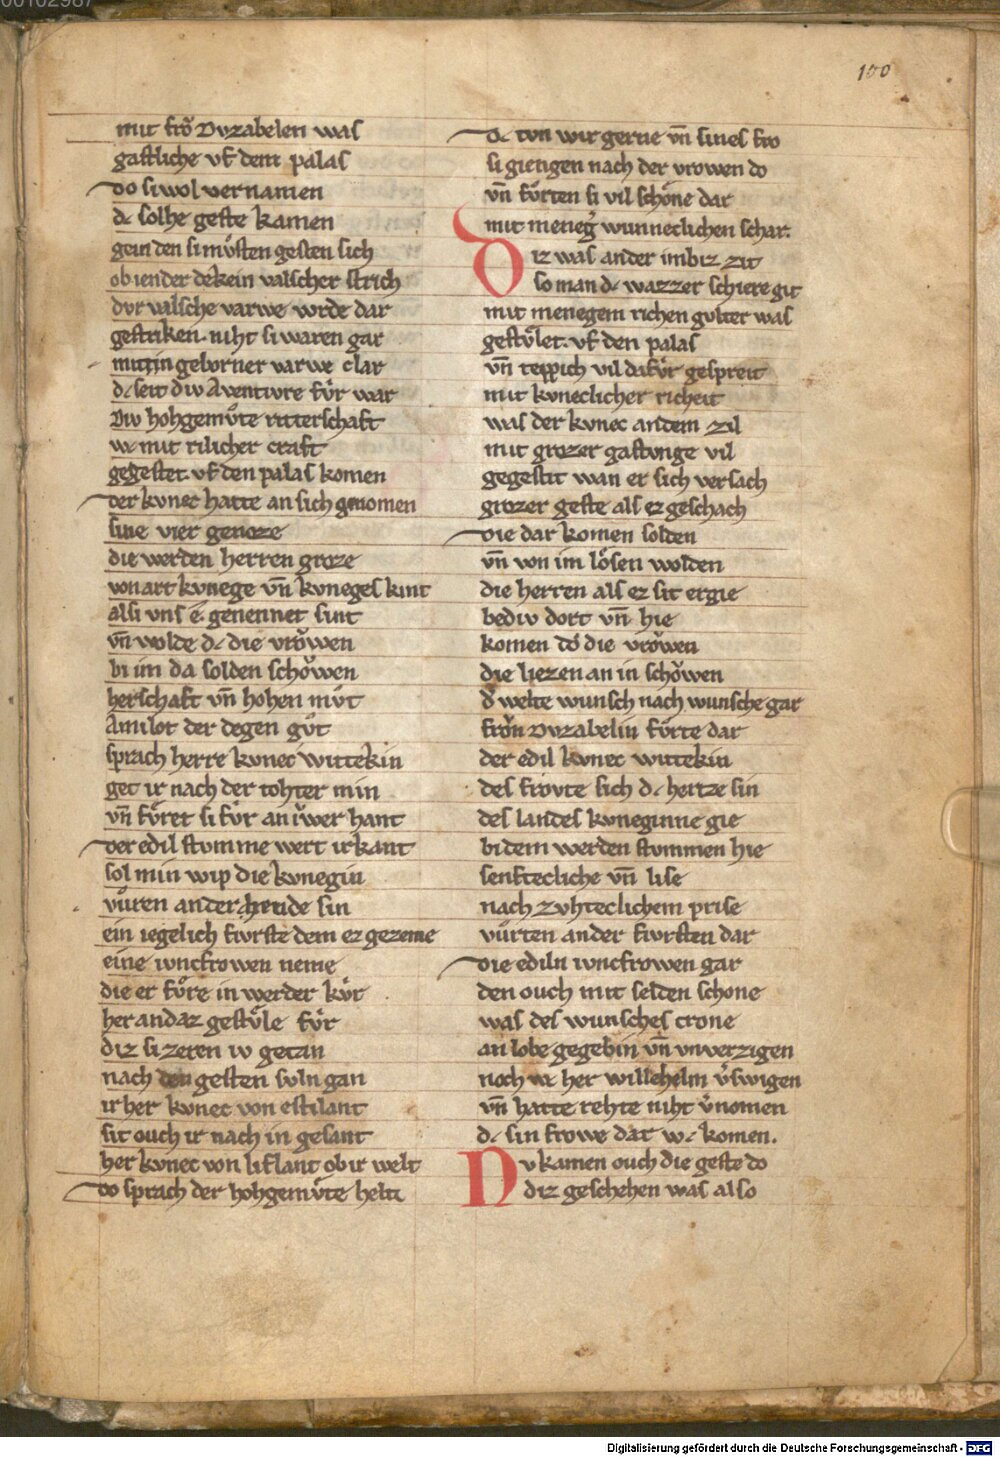 100
mit froͮ Dvzabelen was
gastliche vf dem palas
do si wol vernamen
dc solhe geste kamen
gein den si mvͤsten gesten sich
ob iender dekein valscher strich
dvr valsche varwe wrde dar
gestriken. niht si waren gar
mit in geborner varwe clar
dc seit div Aventivre fvͤr war
Div hohgemvͤte ritterschaft
wc mit rilicher craft
gegestet. vf den palas komen
der kvnec hatte an sich genomen
sine vier genoze
die werden herren groze
von art kvnege vn̄ kvneges kint
als i vns e. genennet sint
vn̄ wolde dc die vroͮwen
bi im da solden schoͮwen
herschaft vn̄ hohen mvͦt
Amilot der degen gvͦt
sprach herre kvnec wittekin
get ir nach der tohter min
vn̄ fvͤret si fvͤr an ivͤwer hant
der edil stvmme wert irkant
sol min wip die kvnegin
vvͤren an der hende sin
ein iegelich fivrste dem ez gezeme
eine ivncfrowen neme
die er fvͤre in werder kvͤr
her an daz gestvͤle fvͤr
diz si zeren iv getan
nach den gesten svln gan
ir her kvnec von estilant
sit ouch ir nach in gesant
her kvnec von liflant ob ir welt
do sprach der hohgemvͤte helt
dc tvn wir gerne vn̄ sines fro
si giengen nach der vrowen do
vn̄ fvͤrten si vil schone dar
mit meneg̾ wunneclichen schar.
Diz was an der imbiz zit
so man dc wazzer schiere git
mit menegem richen gvlter was
gestvͤlet. vf den palas
vn̄ teppich vil da fvͤr gespreit
mit kvneclicher richeit
was der kvnec an dem zil
mit grozer gastvnge vil
gegestit wan er sich versach
grozer geste als ez geschach
die dar komen solden
vn̄ von im loͤsen wolden
die herren als ez sit ergie
bediv dort vn̄ hie
komen do die vroͮwen
die liezen an in schoͮwen
d̾ welte wunsch nach wunsche gar
froͮn Dvzabelin fvͤrte dar
der edil kvnec wittekin
des froͮte sich dc hertze sin
des landes kvneginne gie
bi dem werden stvmmen hie
senftecliche vn̄ lise
nach zvhteclichem prise
vvͤrten ander fivrsten dar
die ediln ivncfrowen gar
den ouch mit selden schone
was des wunsches crone
an lobe gegebin vn̄ vnverzigen
noch wc her willehelm v̾swigen
vn̄ hatte rehte niht v̾nomen
dc sin frowe dar wc komen.
Nv kamen ouch die geste do
diz geschehen was also
Digitalisierung gefördert durch die Deutsche Forschungsgemeinschaft - DFG